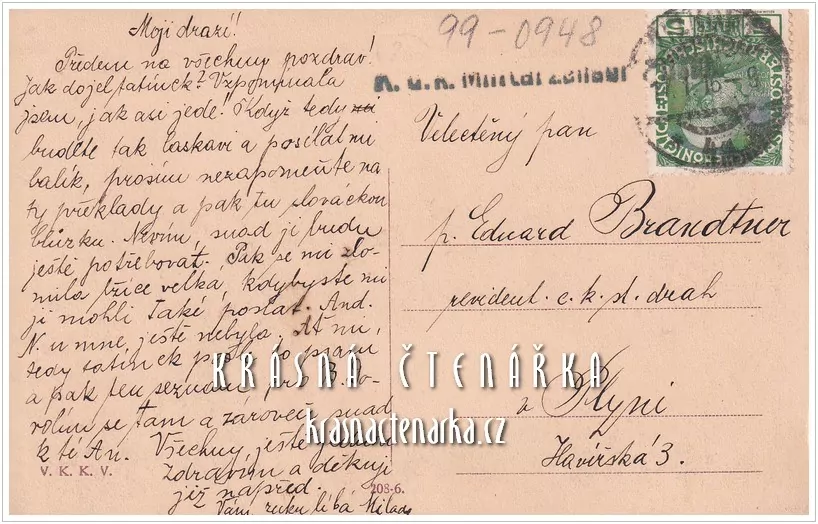 Moji drazí!
Předem na všechny pozdrav!
Jak dojel tatínek? Vzpomínala
jsem, jak asi jede! Když tedy mi
budete tak laskavi a posílat mi
balík, prosím nezapomeňte na
ty překlady a pak tu slováckou
blůzku. Nevím, snad ji budu
ještě potřebovat. Pak se mi zlo-
mila lžíce velká, kdybyste mi
ji mohli také poslat. And.
N. u mne ještě nebyla. Ať mi,
tedy tatínek
a pak ten seznam pro
volím se tam a zároveň snad
k té An. Všechny ještě
zdravím a děkuji
již napřed.
Vám ruku líbá Milada
V. K. K. V.
208-6.
99-0948
K. u. K. Militärzensur
5
Velectěný pan
p. Eduard Brandtner
revident c. k. st. drah
v Plzni
Havířská 3.
KRÁSNÁ ČTENÁŘKA
krasnactenarka.cz